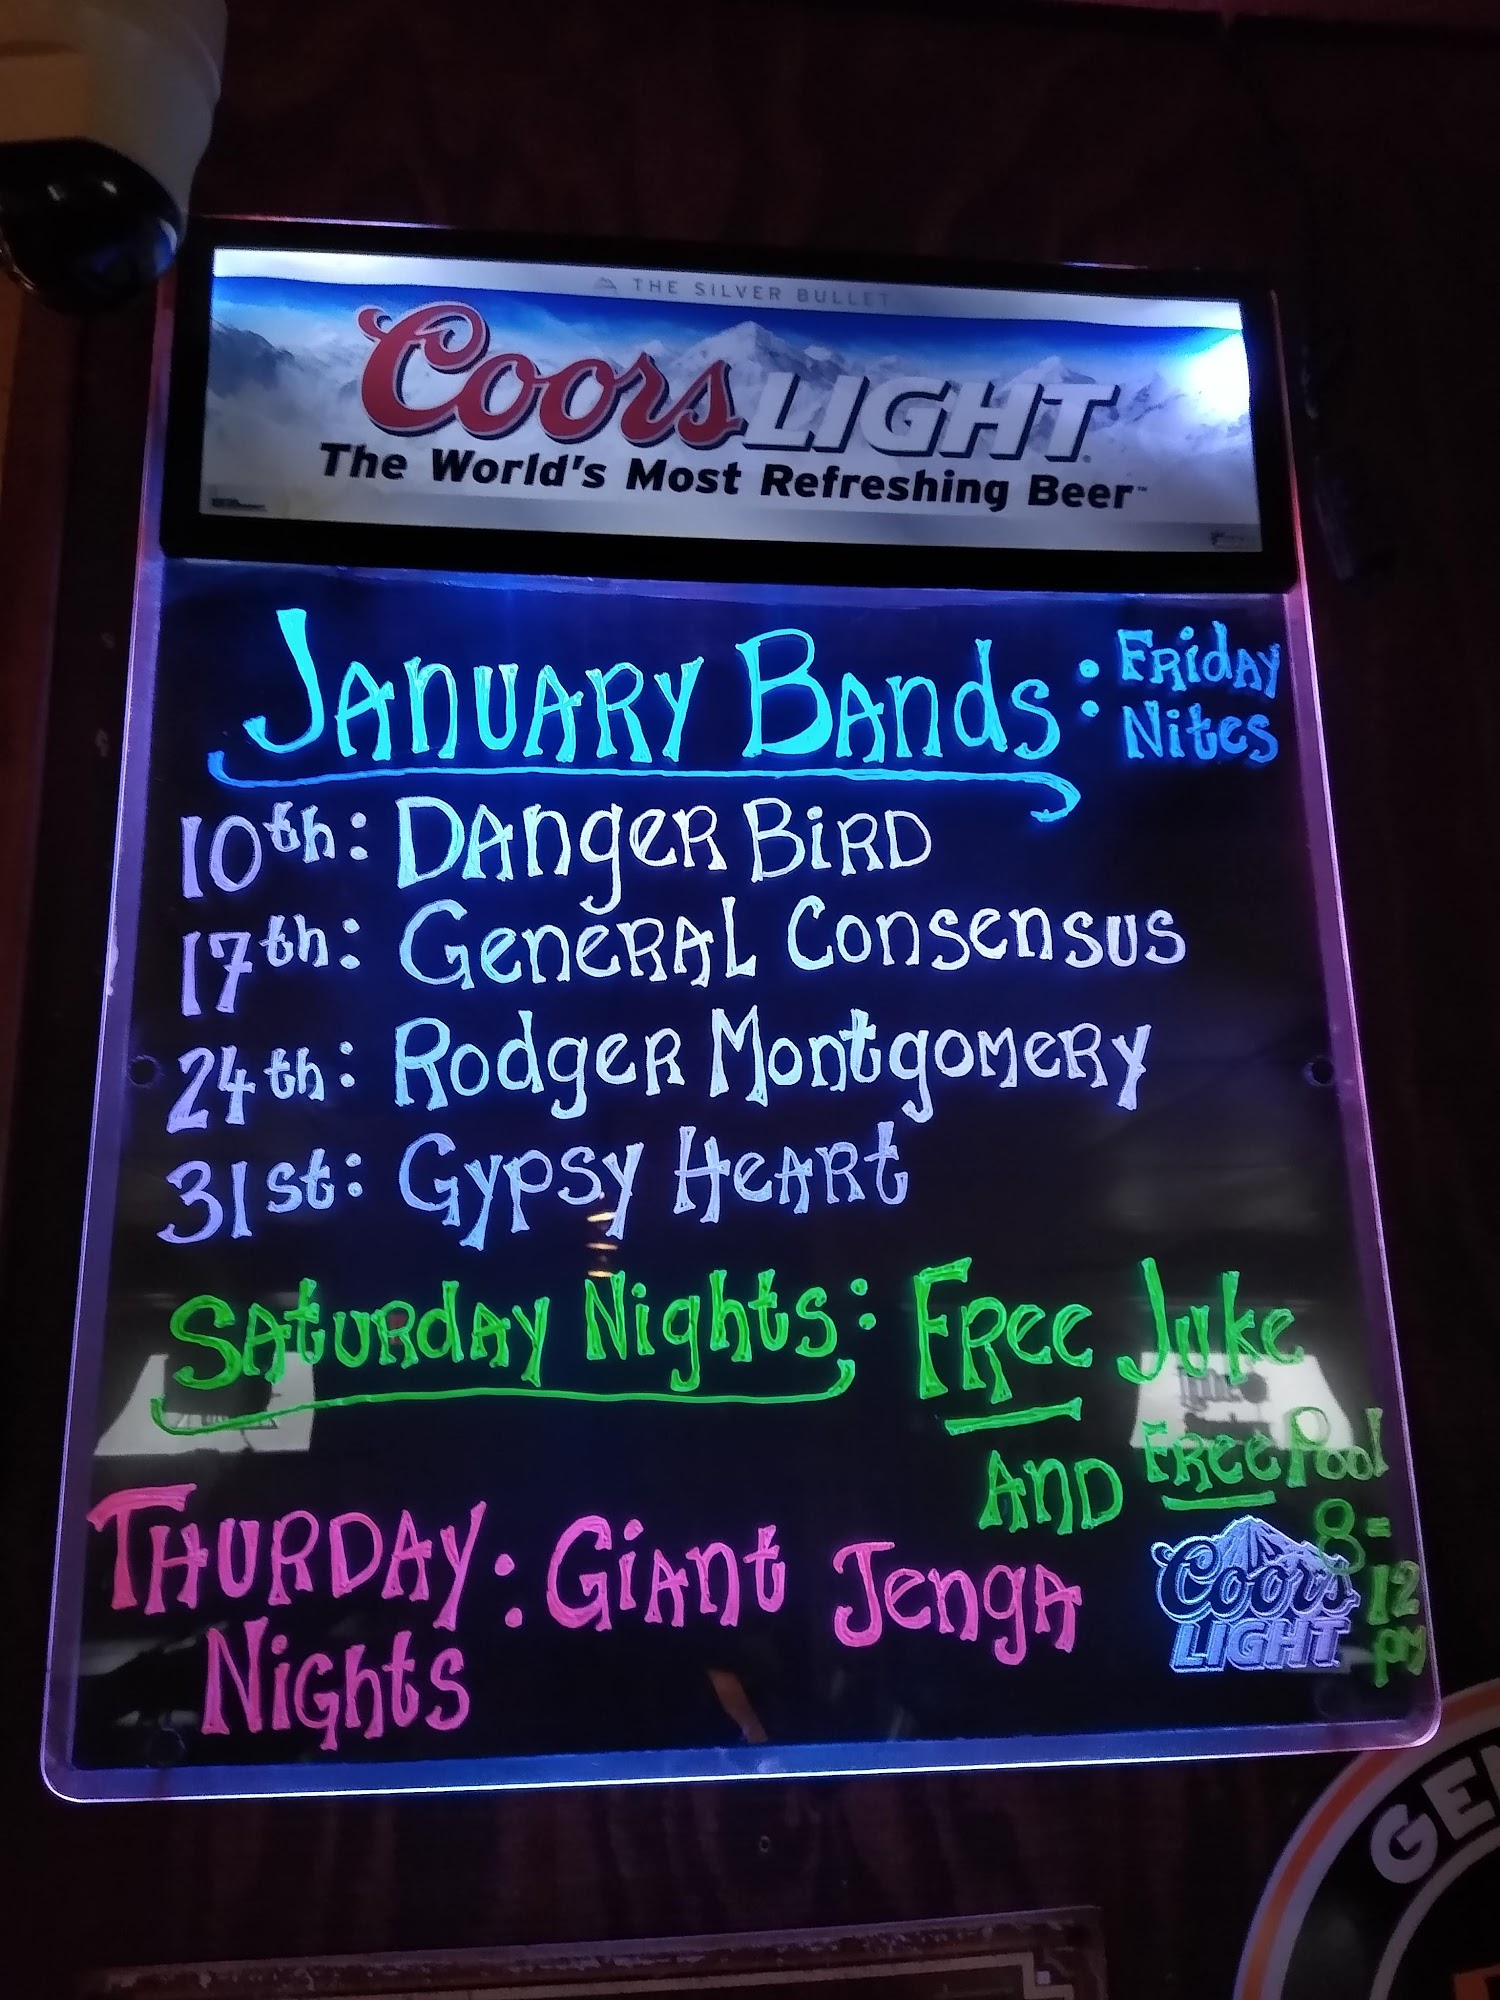 THE SILVER BULLET
Coors LIGHT
The World's Most Refreshing Beer™
JANUARY BANDS: FRIDAY
NITES
10th: DANGER BIRD
17th: GENERAL CONSENSUS
24th: RODGER MONTGOMERY
31st: GYPSY HEART
SATURDAY NIGHTS: FREE JUKE
AND FREE POOL
8-
12
PM
THURDAY: GIANT JENGA
NIGHTS
Coors
LIGHT
GEN